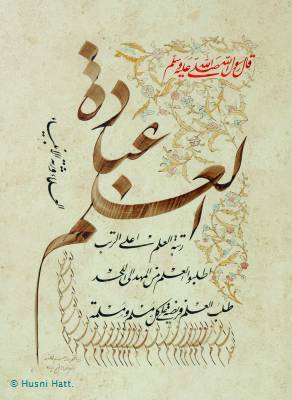 قال رسول الله صلى الله عليه وسلم
العلم عبادة
العلماء ورثة الأنبياء
رتبة العلم اعلى الرتب
اطلبوا العلم من المهد الى اللحد
طلب العلم فريضة على كل مسلم ومسلمة
© Husni Hatt.